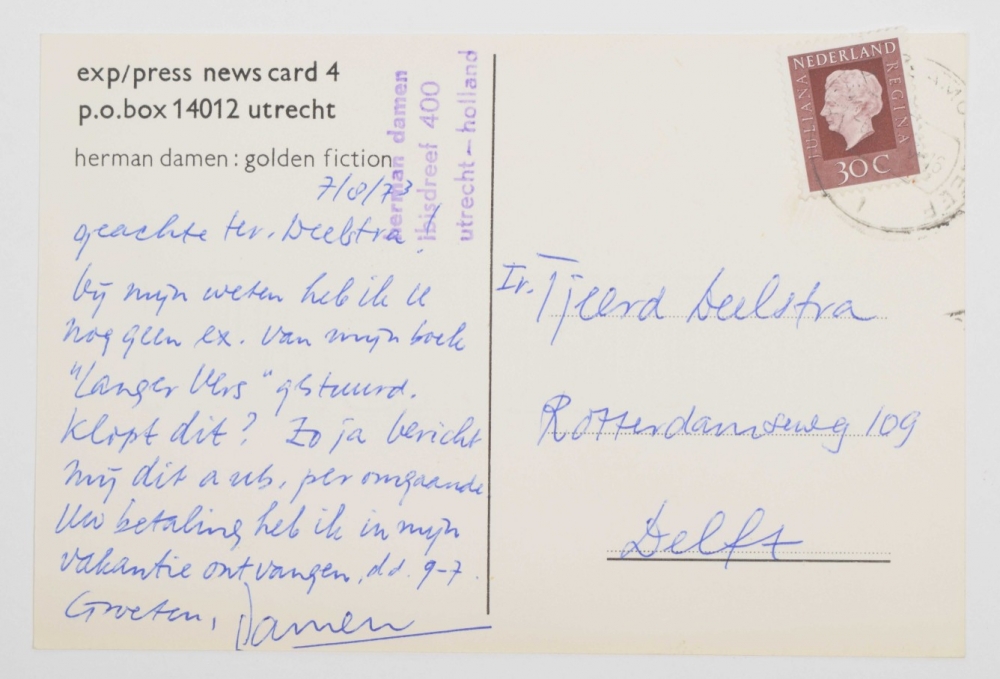 exp/press news card 4
p.o.box 14012 utrecht
herman damen: golden fiction
herman damen
ibisdreef 400
utrecht – holland
7/8/73
geachte Hr. Deelstra,
bij mijn weten heb ik U
nog geen ex. van mijn boek
"Langer Vers" gestuurd.
Klopt dit? Zo ja bericht
mij dit a ub. per omgaande
Uw betaling heb ik in mijn
vakantie ontvangen, d.d. 9-7.
Groeten, Damen
NEDERLAND
JULIANA REGINA
30 C
Ir. Tjeerd Deelstra
Rotterdamseweg 109
Delft